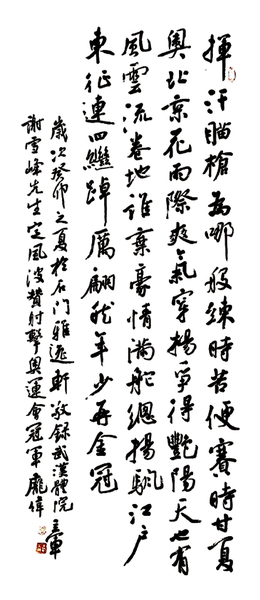 揮汗瞄槍為哪般練時苦便賽時甘夏
奧北京花雨際爽氣穿楊爭得艷陽天也有
風雲流卷地誰棄豪情滿舵總揚颿江戶
東征連四踔厲翩然年少再金冠
歲次癸卯之夏於石门雅逸軒敬錄武漢體院
謝雪峰先生定風波贊射擊奧運會冠軍龐偉
軍